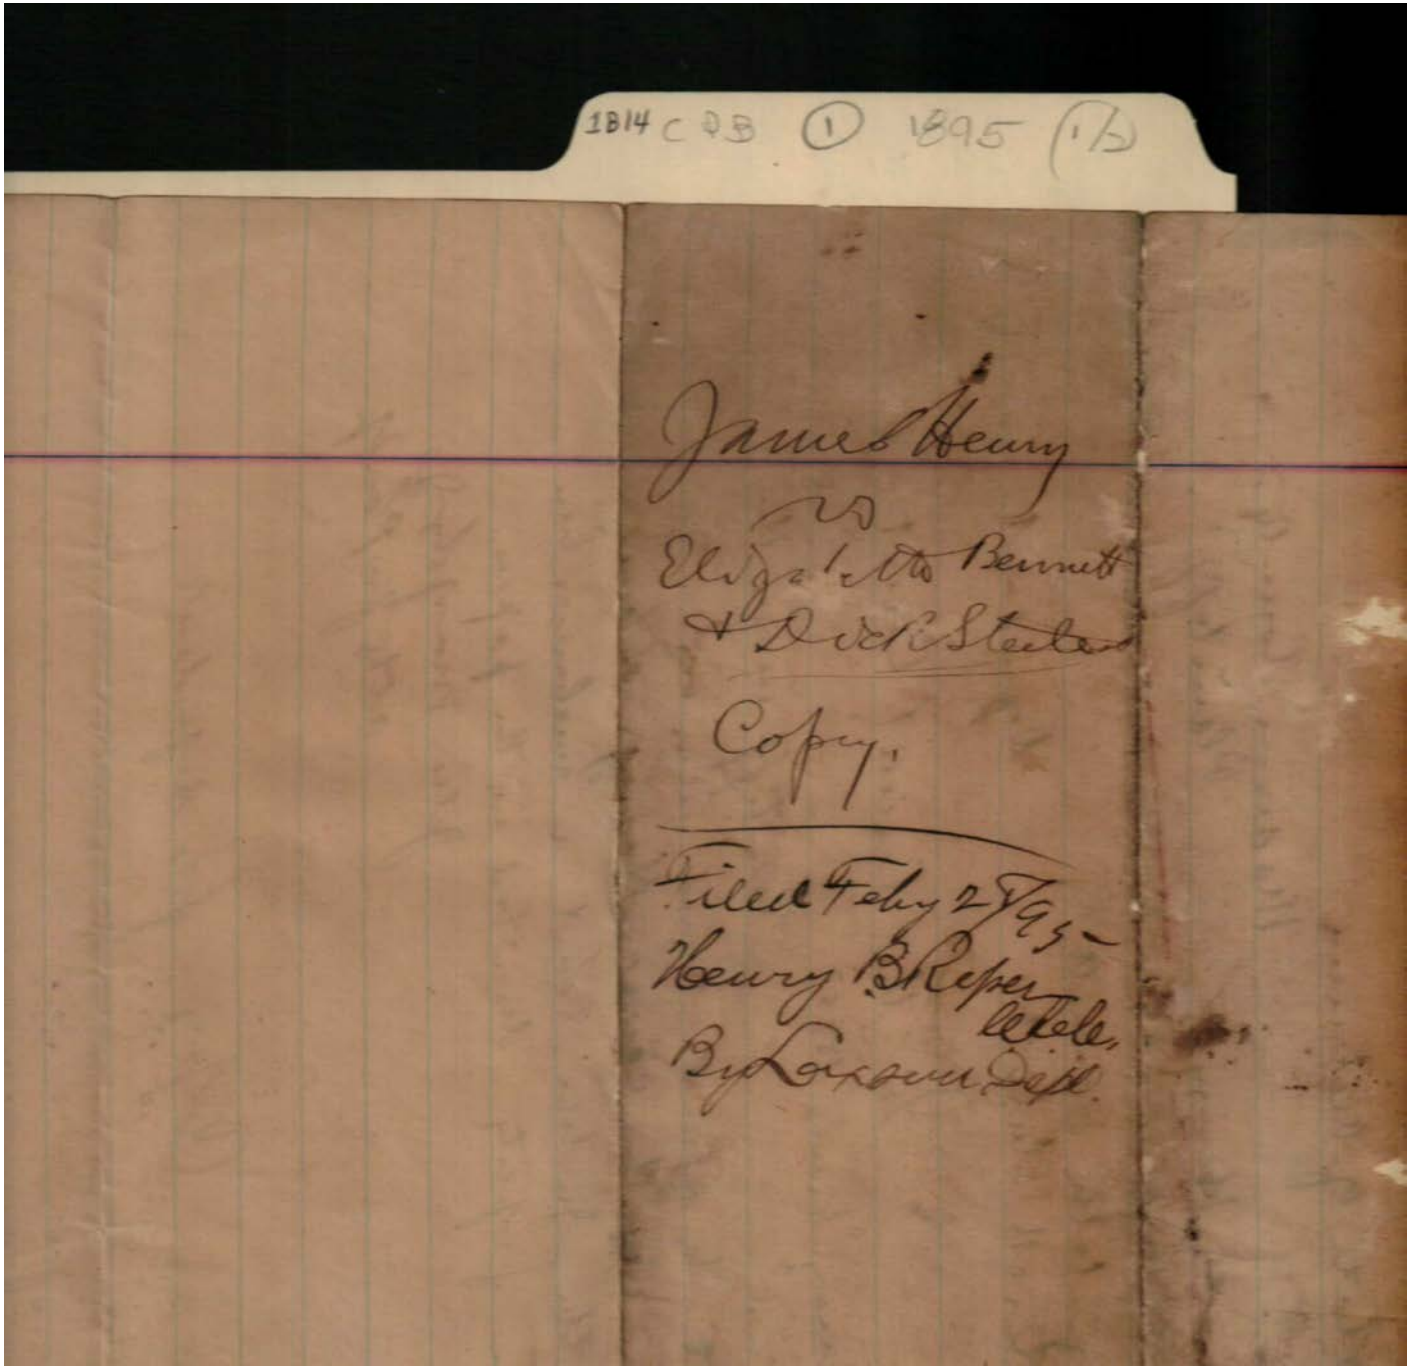 1B14 C D B ① 1895 (1/2)
James Henry
vs
Elizabeth Bennett
& Dick Steele
Copy.
Filed Feby 28/95
Henry B
By Dept.